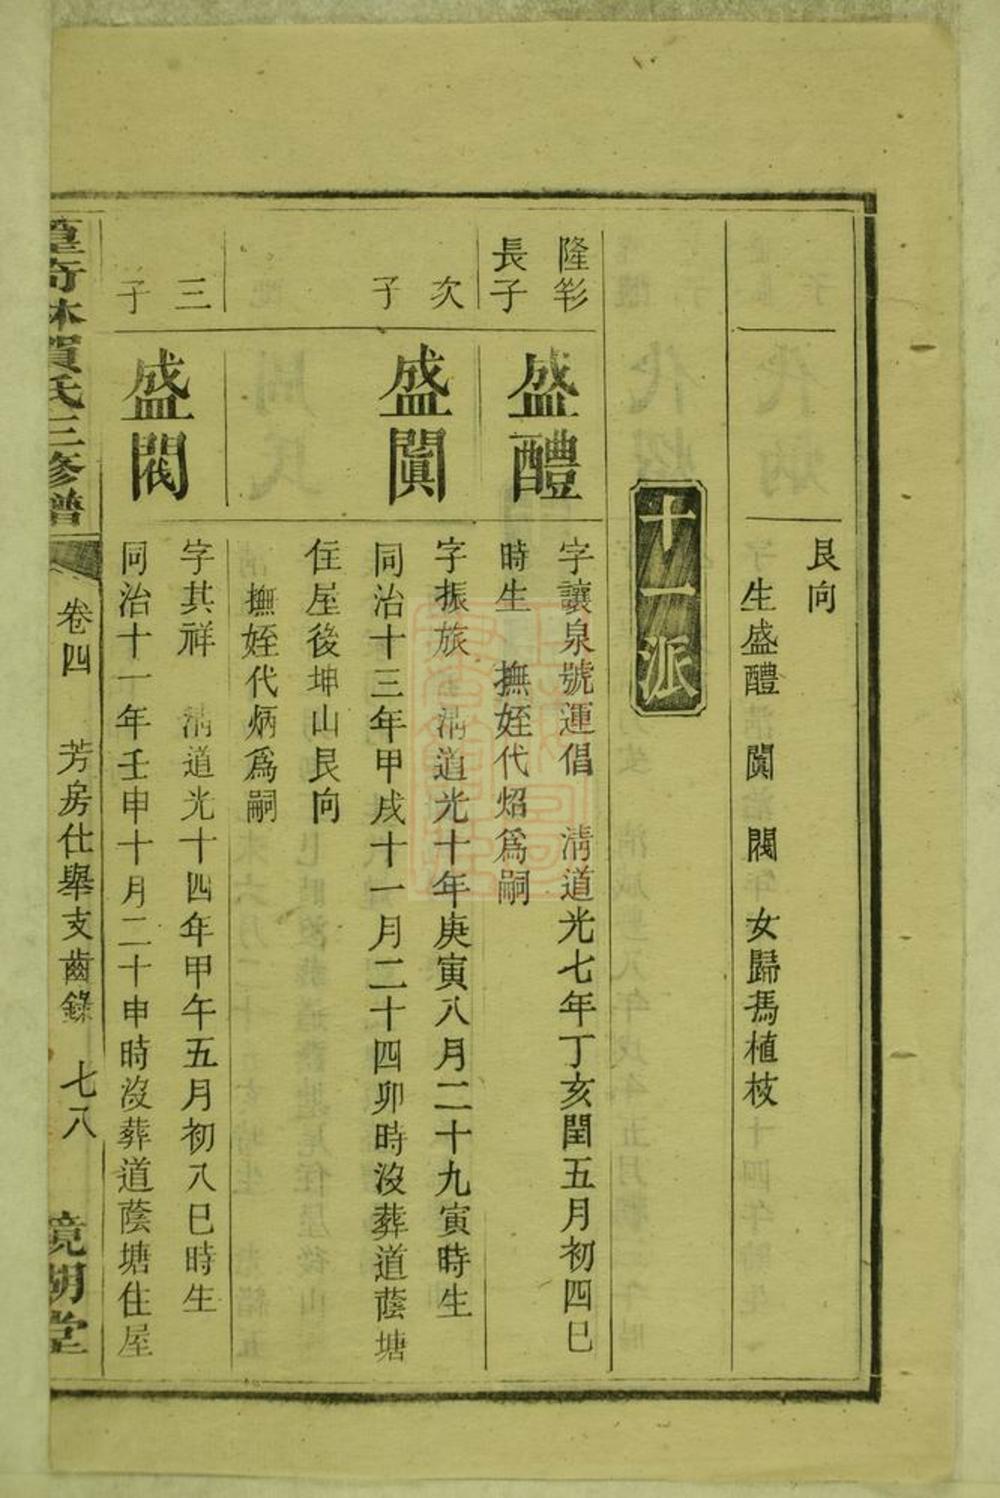 艮向
生盛醴 闐 閥 女歸馮植枝
十一派
隆彩
長子
盛醴
字讓泉號運倡 淸道光七年丁亥閏五月初四巳
時生 撫姪代炤爲嗣
次
子
盛闐
字振旅 淸道光十年庚寅八月二十九寅時生
同治十三年甲戌十一月二十四卯時沒葬道蔭塘
住屋後坤山艮向
撫姪代炳爲嗣
三
子
盛閥
字其祥 淸道光十四年甲午五月初八巳時生
同治十一年壬申十月二十申時沒葬道蔭塘住屋
賀氏三修譜
卷四 芳房仕舉支齒錄 七八
鏡湖堂